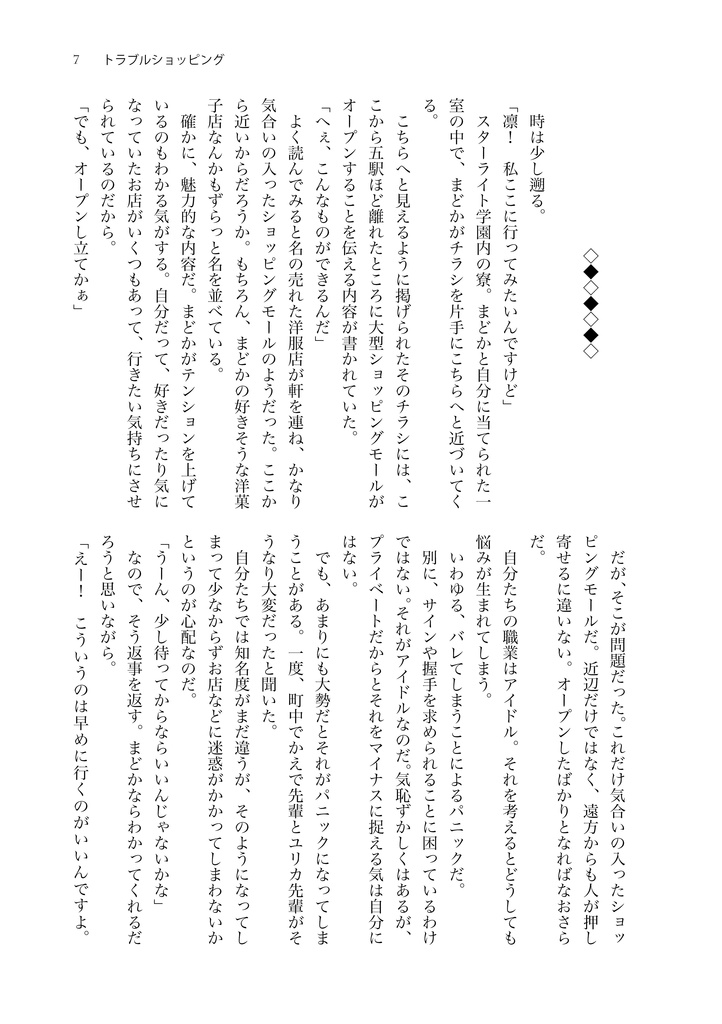 7 トラブルショッピング
◇◆◇◆◇◆◇
時は少し遡る。
「凛！ 私ここに行ってみたいんですけど」
スターライト学園内の寮。まどかと自分に当てられた一
室の中で、まどかがチラシを片手にこちらへと近づいてく
る。
こちらへと見えるように掲げられたそのチラシには、こ
こから五駅ほど離れたところに大型ショッピングモールが
オープンすることを伝える内容が書かれていた。
「へぇ、こんなものができるんだ」
よく読んでみると名の売れた洋服店が軒を連ね、かなり
気合いの入ったショッピングモールのようだった。ここか
ら近いからだろうか。もちろん、まどかの好きそうな洋菓
子店なんかもずらっと名を並べている。
確かに、魅力的な内容だ。まどかがテンションを上げて
いるのもわかる気がする。自分だって、好きだったり気に
なっていたお店がいくつもあって、行きたい気持ちにさせ
られているのだから。
「でも、オープンし立てかぁ」
だが、そこが問題だった。これだけ気合いの入ったショッ
ピングモールだ。近辺だけではなく、遠方からも人が押し
寄せるに違いない。オープンしたばかりとなればなおさら
だ。
自分たちの職業はアイドル。それを考えるとどうしても
悩みが生まれてしまう。
いわゆる、バレてしまうことによるパニックだ。
別に、サインや握手を求められることに困っているわけ
ではない。それがアイドルなのだ。気恥ずかしくはあるが、
プライベートだからとそれをマイナスに捉える気は自分に
はない。
でも、あまりにも大勢だとそれがパニックになってしま
うことがある。一度、町中でかえで先輩とユリカ先輩がそ
うなり大変だったと聞いた。
自分たちでは知名度がまだ違うが、そのようになってし
まって少なからずお店などに迷惑がかかってしまわないか
というのが心配なのだ。
「うーん、少し待ってからならいいんじゃないかな」
なので、そう返事を返す。まどかならわかってくれるだ
ろうと思いながら。
「えー！ こういうのは早めに行くのがいいんですよ。